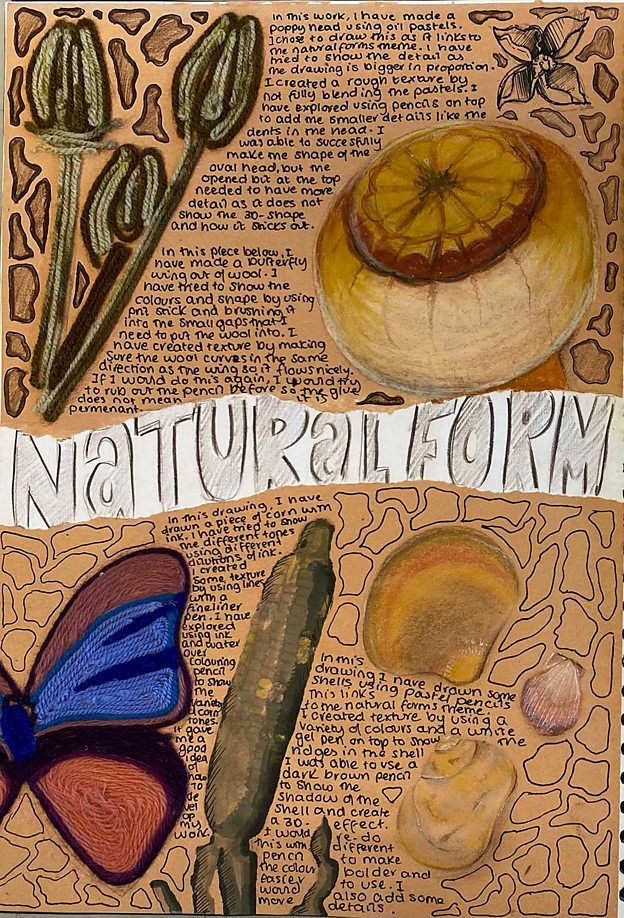 In this work, I have made a
poppy head using oil pastels.
I chose to draw this as it links to
the natural forms theme. I have
tried to show the detail as
the drawing is bigger in proportion.
I created a rough texture by
not fully blending the pastels. I
have explored using pencils on top
to add the smaller details like the
dents in the head. I
was able to succesfully
make the shape of the
oval head, but the
opened bit at the top
needed to have more
detail as it does not
show the 3D-shape
and how it sticks out.
In this piece below, I
have made a butterfly
wing out of wool. I
have tried to show the
colours and shape by using
prit stick and brushing it
into the small gaps that I
need to put the wool into. I
have created texture by making
sure the wool curves in the same
direction as the wing so it flows nicely.
If I would do this again, I would try
to rub out the pencil before so the glue
does not mean
permenant.
NATURAL FORM
In this drawing, I have
drawn a piece of corn with
ink. I have tried to show
the different tones
using different
dilutions of ink.
I created
some texture
by using lines
with a
fineliner
pen. I have
explored
using ink
and water
over
colouring
pencil
to show
the
variety
of corn
tones.
It gave
me a
good
idea
of
how
to
develop
my
work.
In this
drawing I have drawn some
shells using pastel pencils
This links to the natural forms theme.
I created texture by using a
variety of colours and a white
gel pen on top to show the
ridges in the shell
I was able to use a
dark brown pencil
to show the
shadow of the
shell and create
a 3D- effect.
I would re-do
this with different
pencil to make
the colour bolder and
easier to use. I
would also add some
more details.